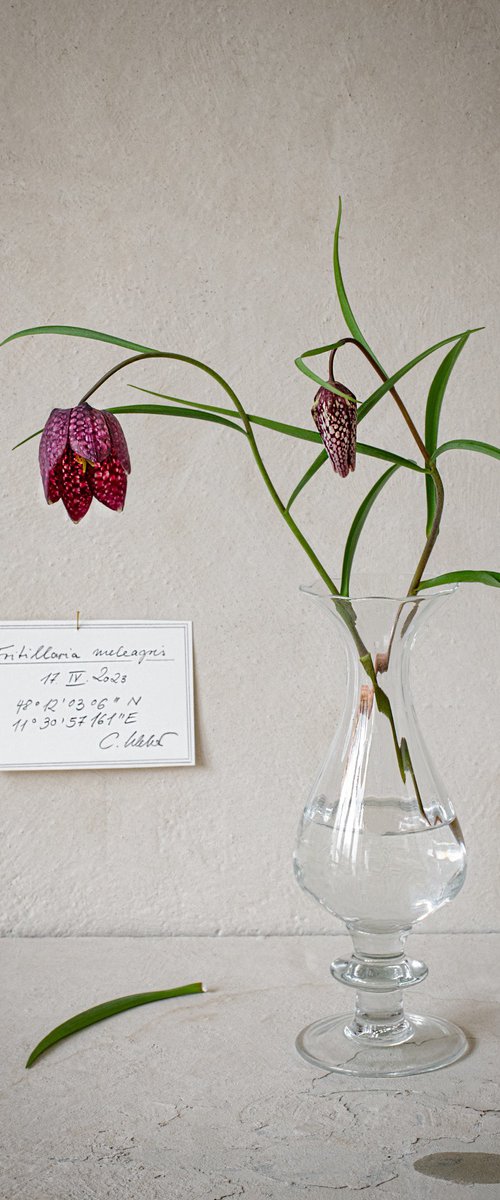 Fritillaria meleagris
17. IV. 2023
48° 12' 03 06" N
11° 30' 57 161" E
C.